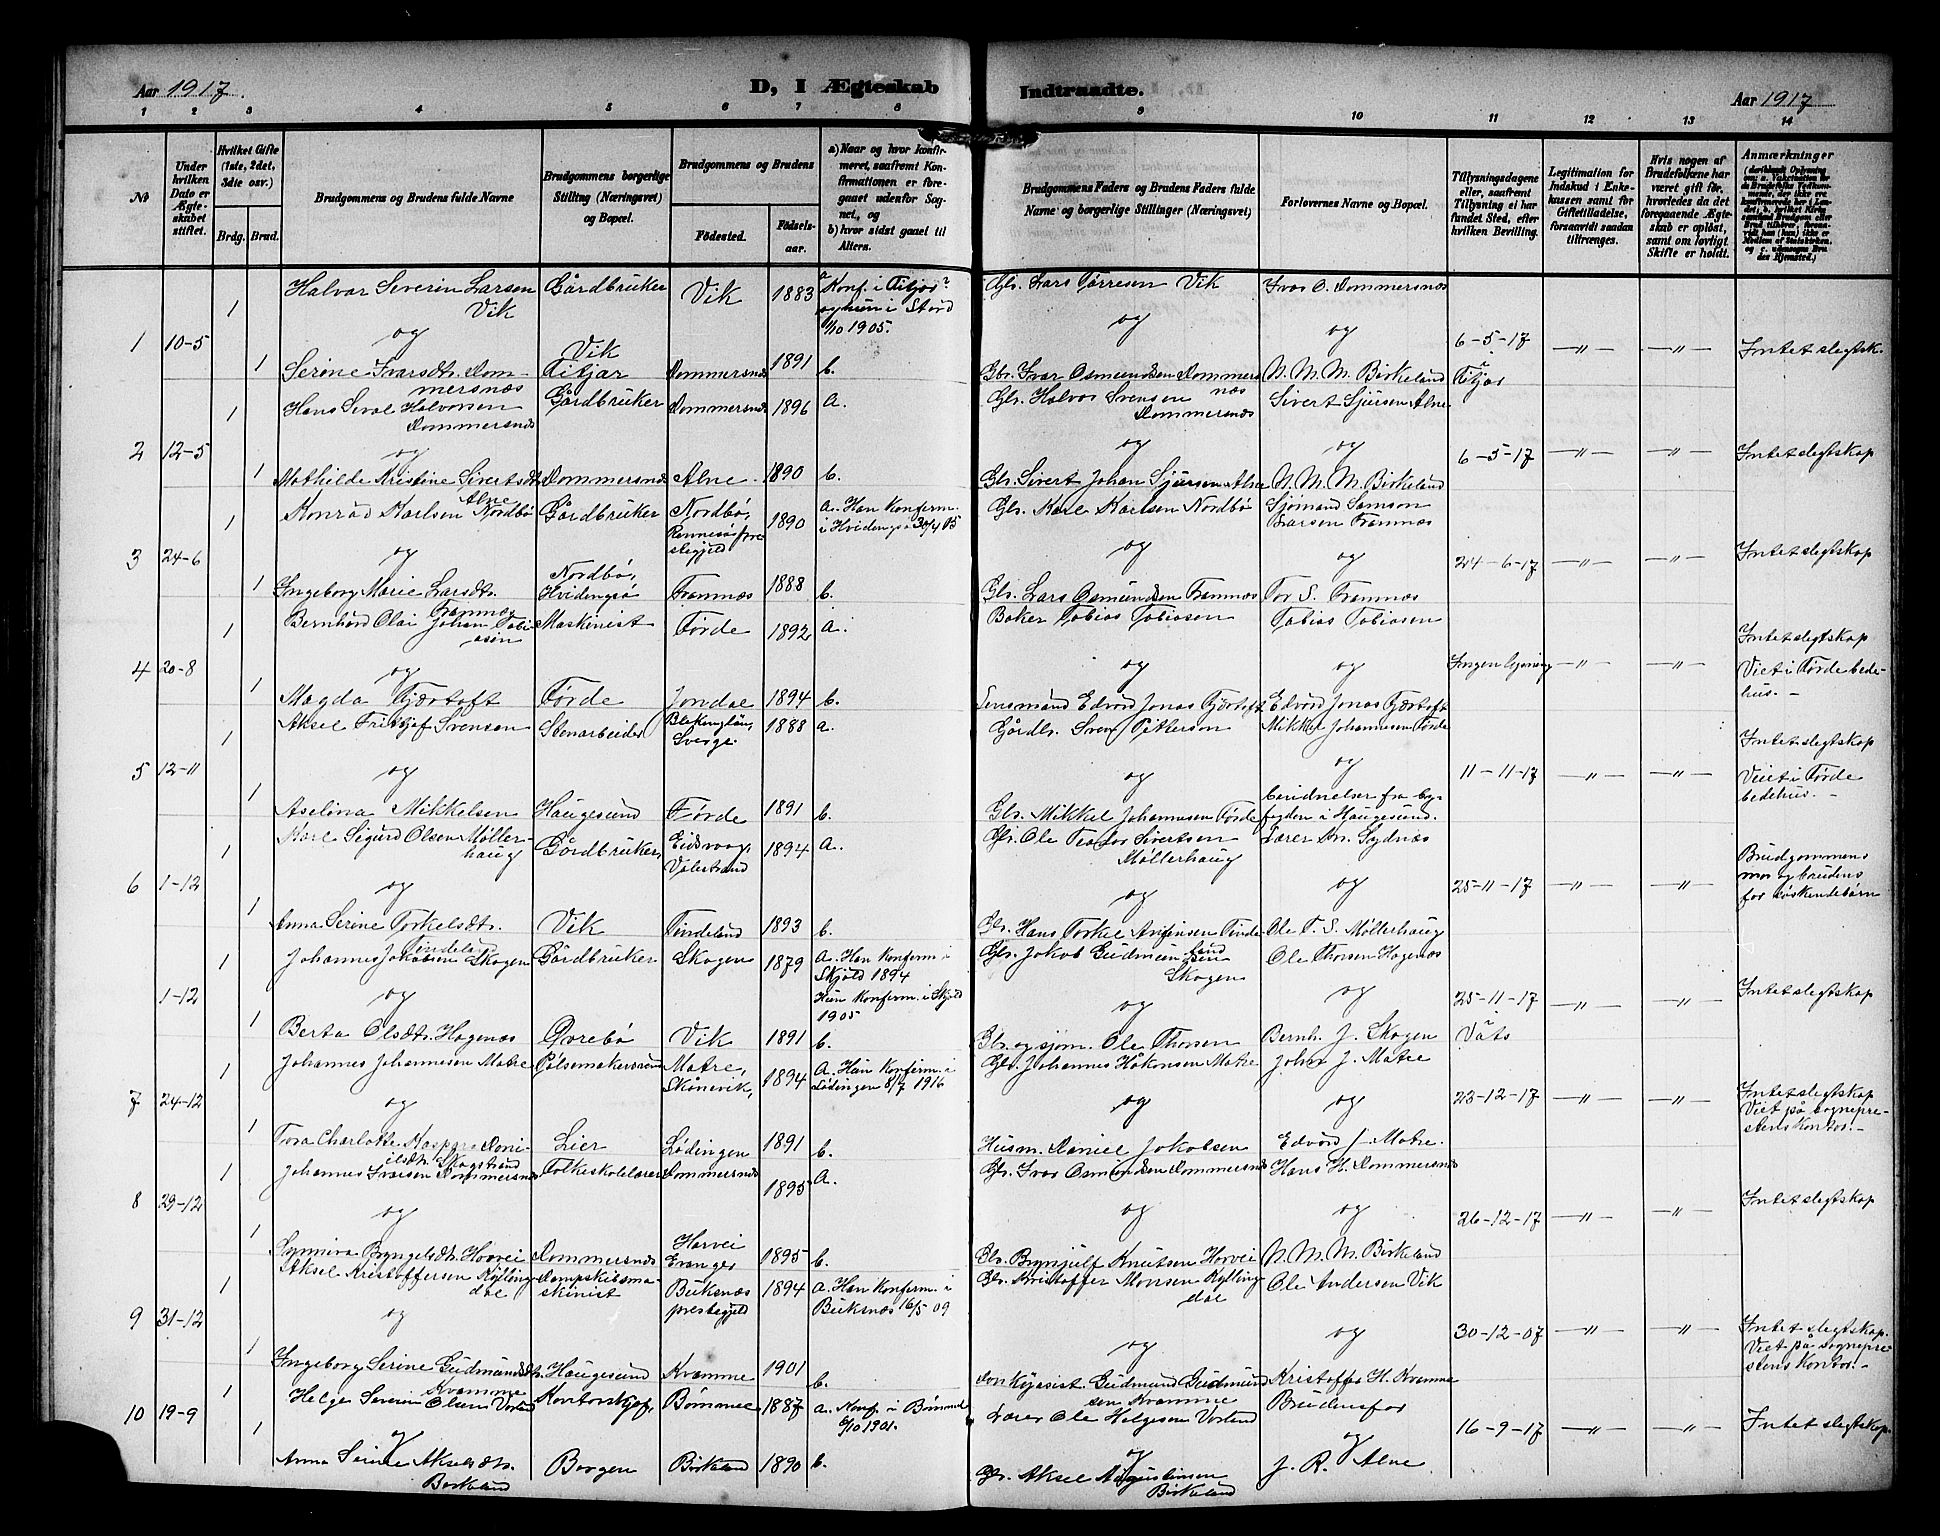 Aar 1917.
D, I Ægteskab Indtraadte.
Aar 1917
1 2 3 4 5 6 7 8 9 10 11 12 13 14
№
Under hvilken Dato er Ægteskabet stiftet.
Hvilket Gifte (1ste, 2det, 3die osv.)
Brdg. Brud.
Brudgommens og Brudens fulde Navne
Brudgommens borgerlige Stilling (Næringsvei) og Bopæl.
Brudgommens og Brudens
Fødested.
Fødselsaar.
a) Naar og hvor konfirmeret, saafremt Konfirmationen er foregaaet udenfor Sognet, og
b) hvor sidst gaaet til Alters.
Brudgommens Faders og Brudens Faders fulde Navne og borgerlige Stillinger (Næringsvei)
Forlovernes Navne og Bopæl.
Tillysningsdagene eller, saafremt Tillysning ei har fundet Sted, efter hvilken Bevilling.
Legitimation for Indskud i Enkekassen samt for Giftetilladelse, forsaavidt saadan tiltrænges.
Hvis nogen af Brudefolkene har været gift før, hvorledes da det foregaaende Ægteskab er opløst, samt om lovligt Skifte er holdt.
Anmærkninger
1 10-5 1 Halvar Severin Larsen Vik Gårdbruker Vik 1883 Konf. i Fitjar og hun i Stord 1/10 1905. Gbr. Lars Tørresen Vik Ivar O. Dommersnes
og og og 6-5-17 i Fitjar —"— —"— Intet slegtsk.
1 Serine Ivarsdtr. Dommersnæs Vik Fitjar Dommersnæs 1891 b. Gbr. Ivar Osmundsen Dommersnæs N. M. M. Birkeland
2 12-5 1 Hans Seval Halvorsen Dommersnæs Gårdbruker Dommersnæs 1896 a. Gbr. Halvor Svensen Dommersnæs Sivert Sjursen Alne
og og og 6-5-17 —"— —"— Intet slegtskap
1 Mathilde Kristine Sivertsdt. Alne Dommersnæs Alne 1890 b. Gbr. Sivert Johan Sjursen Alne N. M. M. Birkeland
3 24-6 1 Konrad Karlsen Nordbø Gårdbruker Nordbø, Rennesø prestegjeld 1890 a. Han konferm. i Hvidingsø 30/4 05 Gbr. Karl Karlsen Nordbø Sjømand Samson Larsen Framnæs
og og og 24-6-17 —"— —"— Intet slegtskap
1 Ingeborg Marie Larsdtr. Framnæs Nordbø, Hvidingsø Framnæs 1888 b. Gbr. Lars Osmundsen Framnæs Tor S. Framnæs
4 20-8 1 Bernhard Olai Johan Tobiasen Maskinist Førde 1892 a. Baker Tobias Tobiasen Tobias Tobiasen
og og og —"— —"— Intet slegtskap Viet i Førde bedehus.-
1 Magda Fjærtoft Førde Jondal 1894 b. Lensmand Edvard Jonas Fjærtoft Edvard Jonas Fjærtoft
5 12-11 1 Aksel Fritjof Svensen Stenarbeider Blekinglän, Sverge. 1888 a. Gårdbr. Sven Pitterson Mikkel Johannesen Førde
og og og 11-11-17 —"— —"— Intet slegtskap Viet i Førde bedehus.-
1 Aselina Mikkelsen Haugesund Førde 1891 b. Gbr. Mikkel Johannesen Førde
6 1-12 1 Karl Sigurd Olsen Møllerhaug Gårdbruker, Eidsvaag, Valestrand 1894 a. Gbr. Ole Teodor Sivertsen Møllerhaug Lærer Sydnes
og og og 25-11-17 —"— —"— Brudgommens mor og brudens far søskendebørn
1 Anna Serine Torkelsdtr. Tindeland Vik Tindeland 1893 b. Gbr. Hans Torkel Arnfinsen Tindeland Ole T. S. Møllerhaug
1-12 1 Johannes Jakobsen Skogen Gårdbruker Skogen 1879 a. Han konferm. i Skjold 1894 Hun konferm. i Skjold 1905 Gbr. Jakob Gudmundsen Skogen Ole Thorsen Hagenæs
og og og 25-11-17 i Vats —"— —"— Intet slegtskap
1 Berta Olsdtr. Hagenæs Øvrebø Vik 1891 b. Gbr. og sjøm. Ole Thorsen Bernh. J. Skogen
7 24-12 1 Johannes Johannesen Matre Pølsemakersvend Matre, Skånevik, 1894 a. Han konferm. i Lødingen 8/7 1916 Gbr. Johannes Håkonsen Matre Johan J. Matre
og og og 23-12-17 —"— —"— Intet slegtskap Viet på sogneprestens kontor.-
1 Tora Charlotte Kaspara Danielsdtr. Skogstrand Lier Lødingen 1891 b. Husm. Daniel Jakobsen Edvard J. Matre.
8 29-12 1 Johannes Ivarsen Dommersnæs Folkeskolelærer Dommersnæs 1895 a. Gbr. Ivar Osmundsen Dommersnæs Hans H. Dommersnæs
og og og 26-12-17 —"— —"— Intet slegtskap
1 Synniva Bryngelsdtr. Horvei Dommersnæs Horvei Evanger 1895 b. Gbr. Brynjulf Knutsen Horvei N. M. M. Birkeland
9 31-12 1 Aksel Kristoffersen Kyllingdal Dampskibsmaskinist Buksnæs prestegjeld 1894 a. Han konferm. i Buksnæs 16/5 09 Gbr. Kristoffer Monsen Kyllingdal Ole Andersen Vik
og og og 30-12-07 —"— —"— Intet slegtskap. Viet på sogneprestens kontor.-
1 Ingeborg Serine Gudmundsdtr. Kvamme Haugesund Kvamme 1901 b. Gudmund Gudmundsen Kvamme Kristoffer H. Kvamme
10 19-9 1 Helge Severin Olsen Vorland Kontorchef, Bømmel 1887 a. Konf. i Bømmel 6/10 1901. Lærer Ole Helgesen Vorland Brudensfar
og og og 16-9-17 —"— —"— Intet slegtskap.
1 Anna Serine Akselsdtr. Birkeland Bergen Birkeland 1890 b. Gbr. Aksel Augustinsen Birkeland J. R. Alne